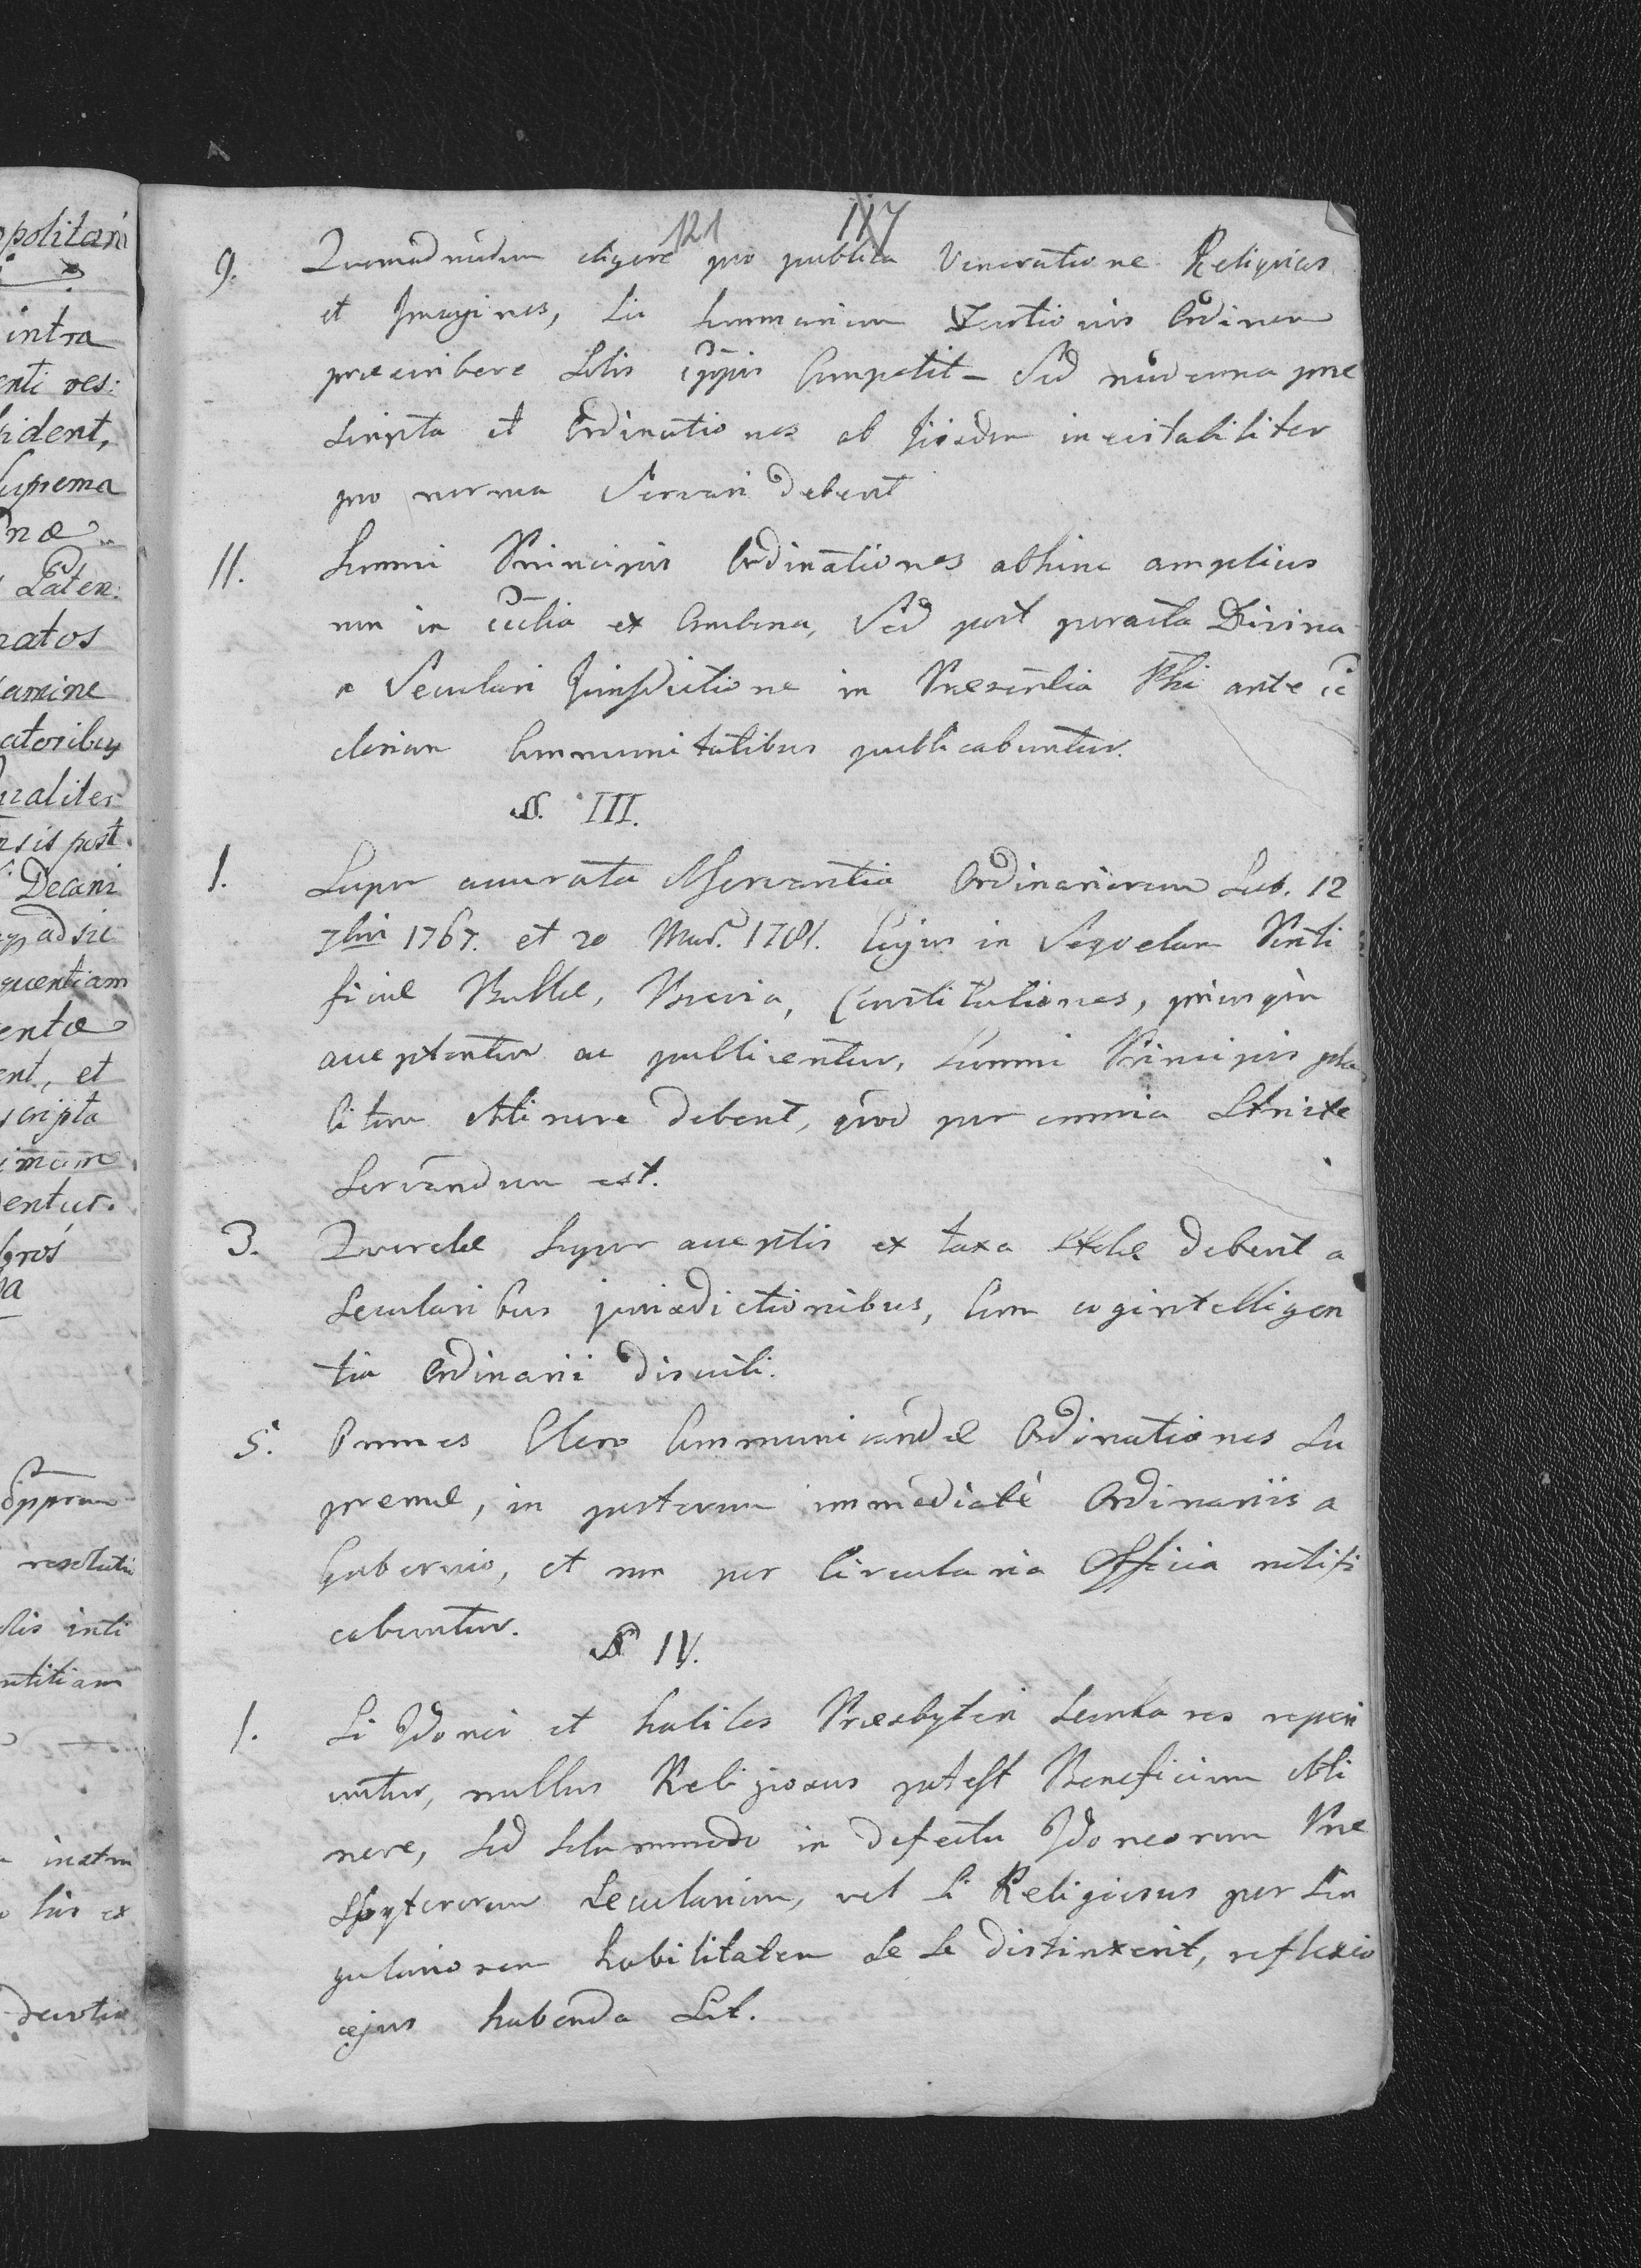 121 117
9. Quemadmodum eligere pro publica Veneratione Reliquias
et Imagines, sic summarium Ordinem
praescribere Solis Eppis Competit – Sed moderna prae
scripta et Ordinationes ab iisdem inevitabiliter
pro norma Servari debent
11. Summi Principis Ordinationes abhinc amplius
non in Ecclia ex Ambona, Sed post peracta Divina
a Seculari Jurisdictione in Praesentia Phi ante Ec
clesiam Communitatibus publicabuntur.
§. III.
1. Super accurata observantia Ordinariorum Sub. 12
7bris 1767. et 20 Mart. 1781. Cujus in Sequelam Ponti
ficiae Bullae, Brevia, Constitutiones, priusqm
acceptentur ac publicentur, Summi Principis pla
citum obtinere debent, quod per omnia Stricte
Servandum est.
3. Querelae Super acceptis ex taxa Stolae debent a
Secularibus jurisdictionibus, Cum cointelligen
tia Ordinarii discuti.
5. Omnes Clero Communicandae Ordinationes Su
premae, in posterum immediatè Ordinariis a
Gubernio, et non per Circularia Officia notifi
cabuntur.
§ IV.
1. Si Idonei et habiles Praesbyteri Seculares reperi
untur, nullus Religiosus potest Beneficium obti
nere, Sed Solummodo in defectu Idoneorum Prae
sbyterorum Secularium, vel Si Religiosus per Sin
gulariorem habilitatem de Se distinxerit, reflexio
ejus habenda Sit.
opolitani
intra
enti res:
sident,
Suprema
nae
Paten:
natos
amine
atoribus
ualiter
nsis post
Decani
ad sic
quentiam
entae
ent, et
scripta
imam
entur.
resoluti
inti
his ex